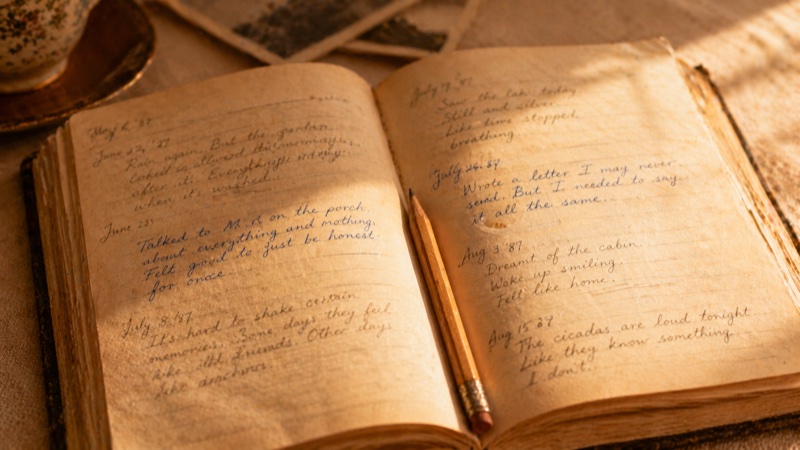 May 6, '87
June 22, '87
Rain again. But the garden
after it. Everything
when it washed.
June 25
Talked to M. R. on the porch
about everything and nothing.
Felt good to just be honest
for once...
July 8, '87
It's hard to shake certain
memories. Some days they feel
like old friends. Other days
like anchors.
July 19, '87
Saw the lake today
Still and silver.
Like time stopped
breathing.
July 26, 87
Wrote a letter I may never
send. But I needed to say
it all the same...
Aug 3 '87
Dreamt of the cabin.
Woke up smiling.
Felt like home.
Aug 15 87
The cicadas are loud tonight
Like they know something
I don't...